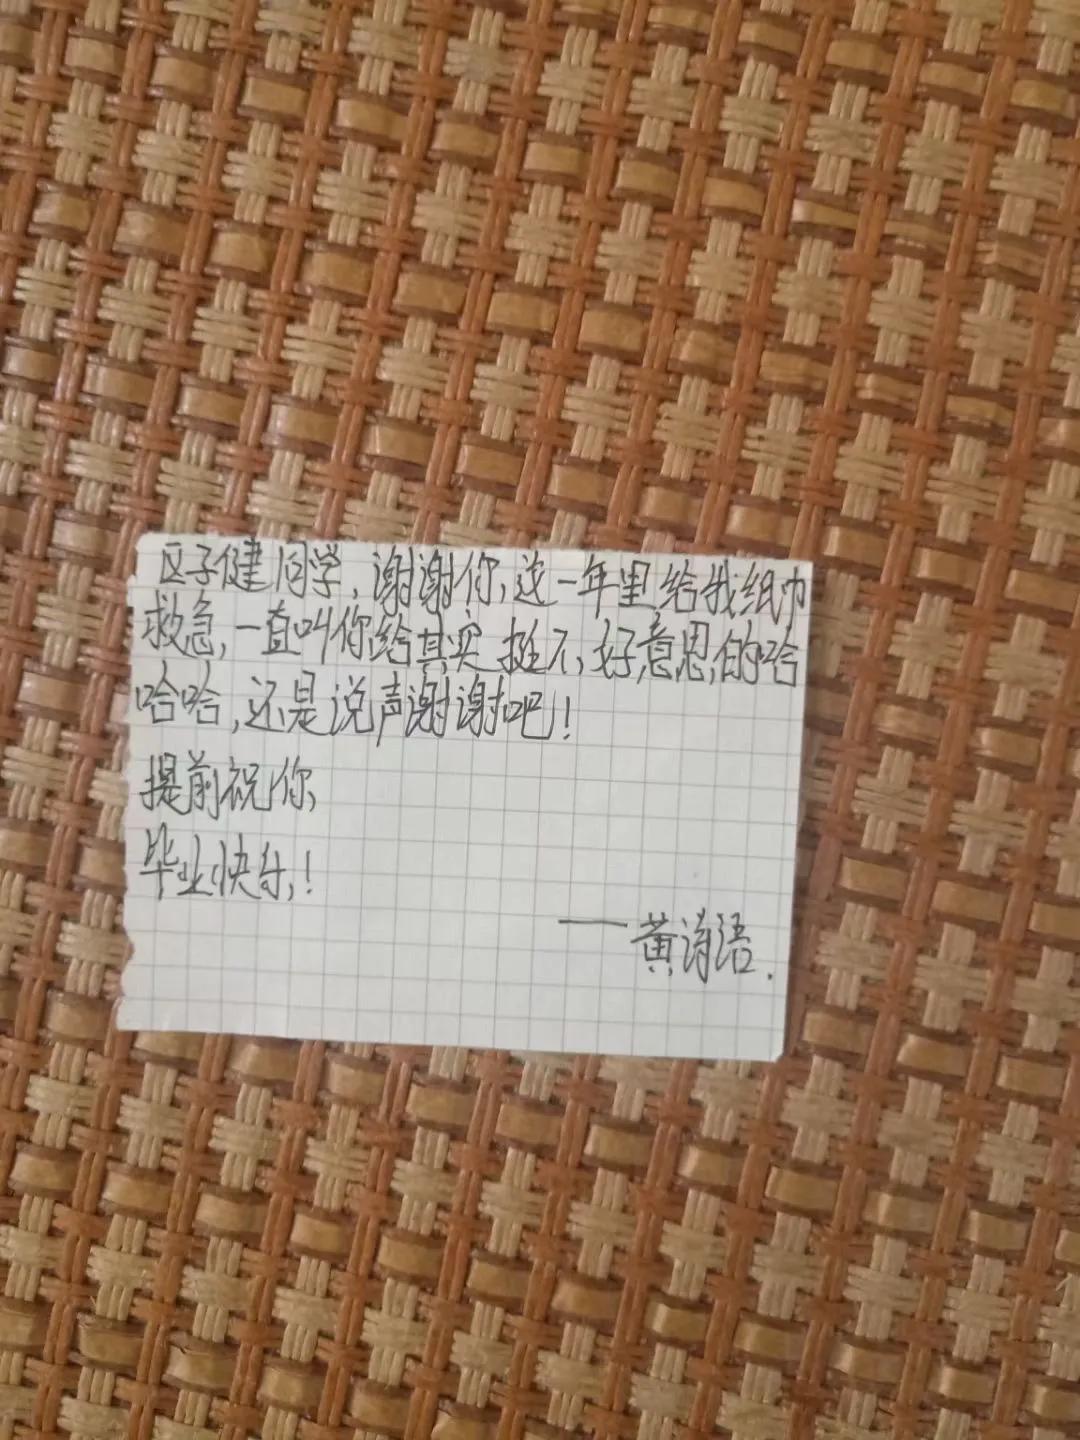 区子健同学,谢谢你,这一年里给我纸巾
救急,一直叫你给其实挺不好意思的哈
哈哈,还是说声谢谢吧!
提前祝你
毕业快乐!
——黄诗语.